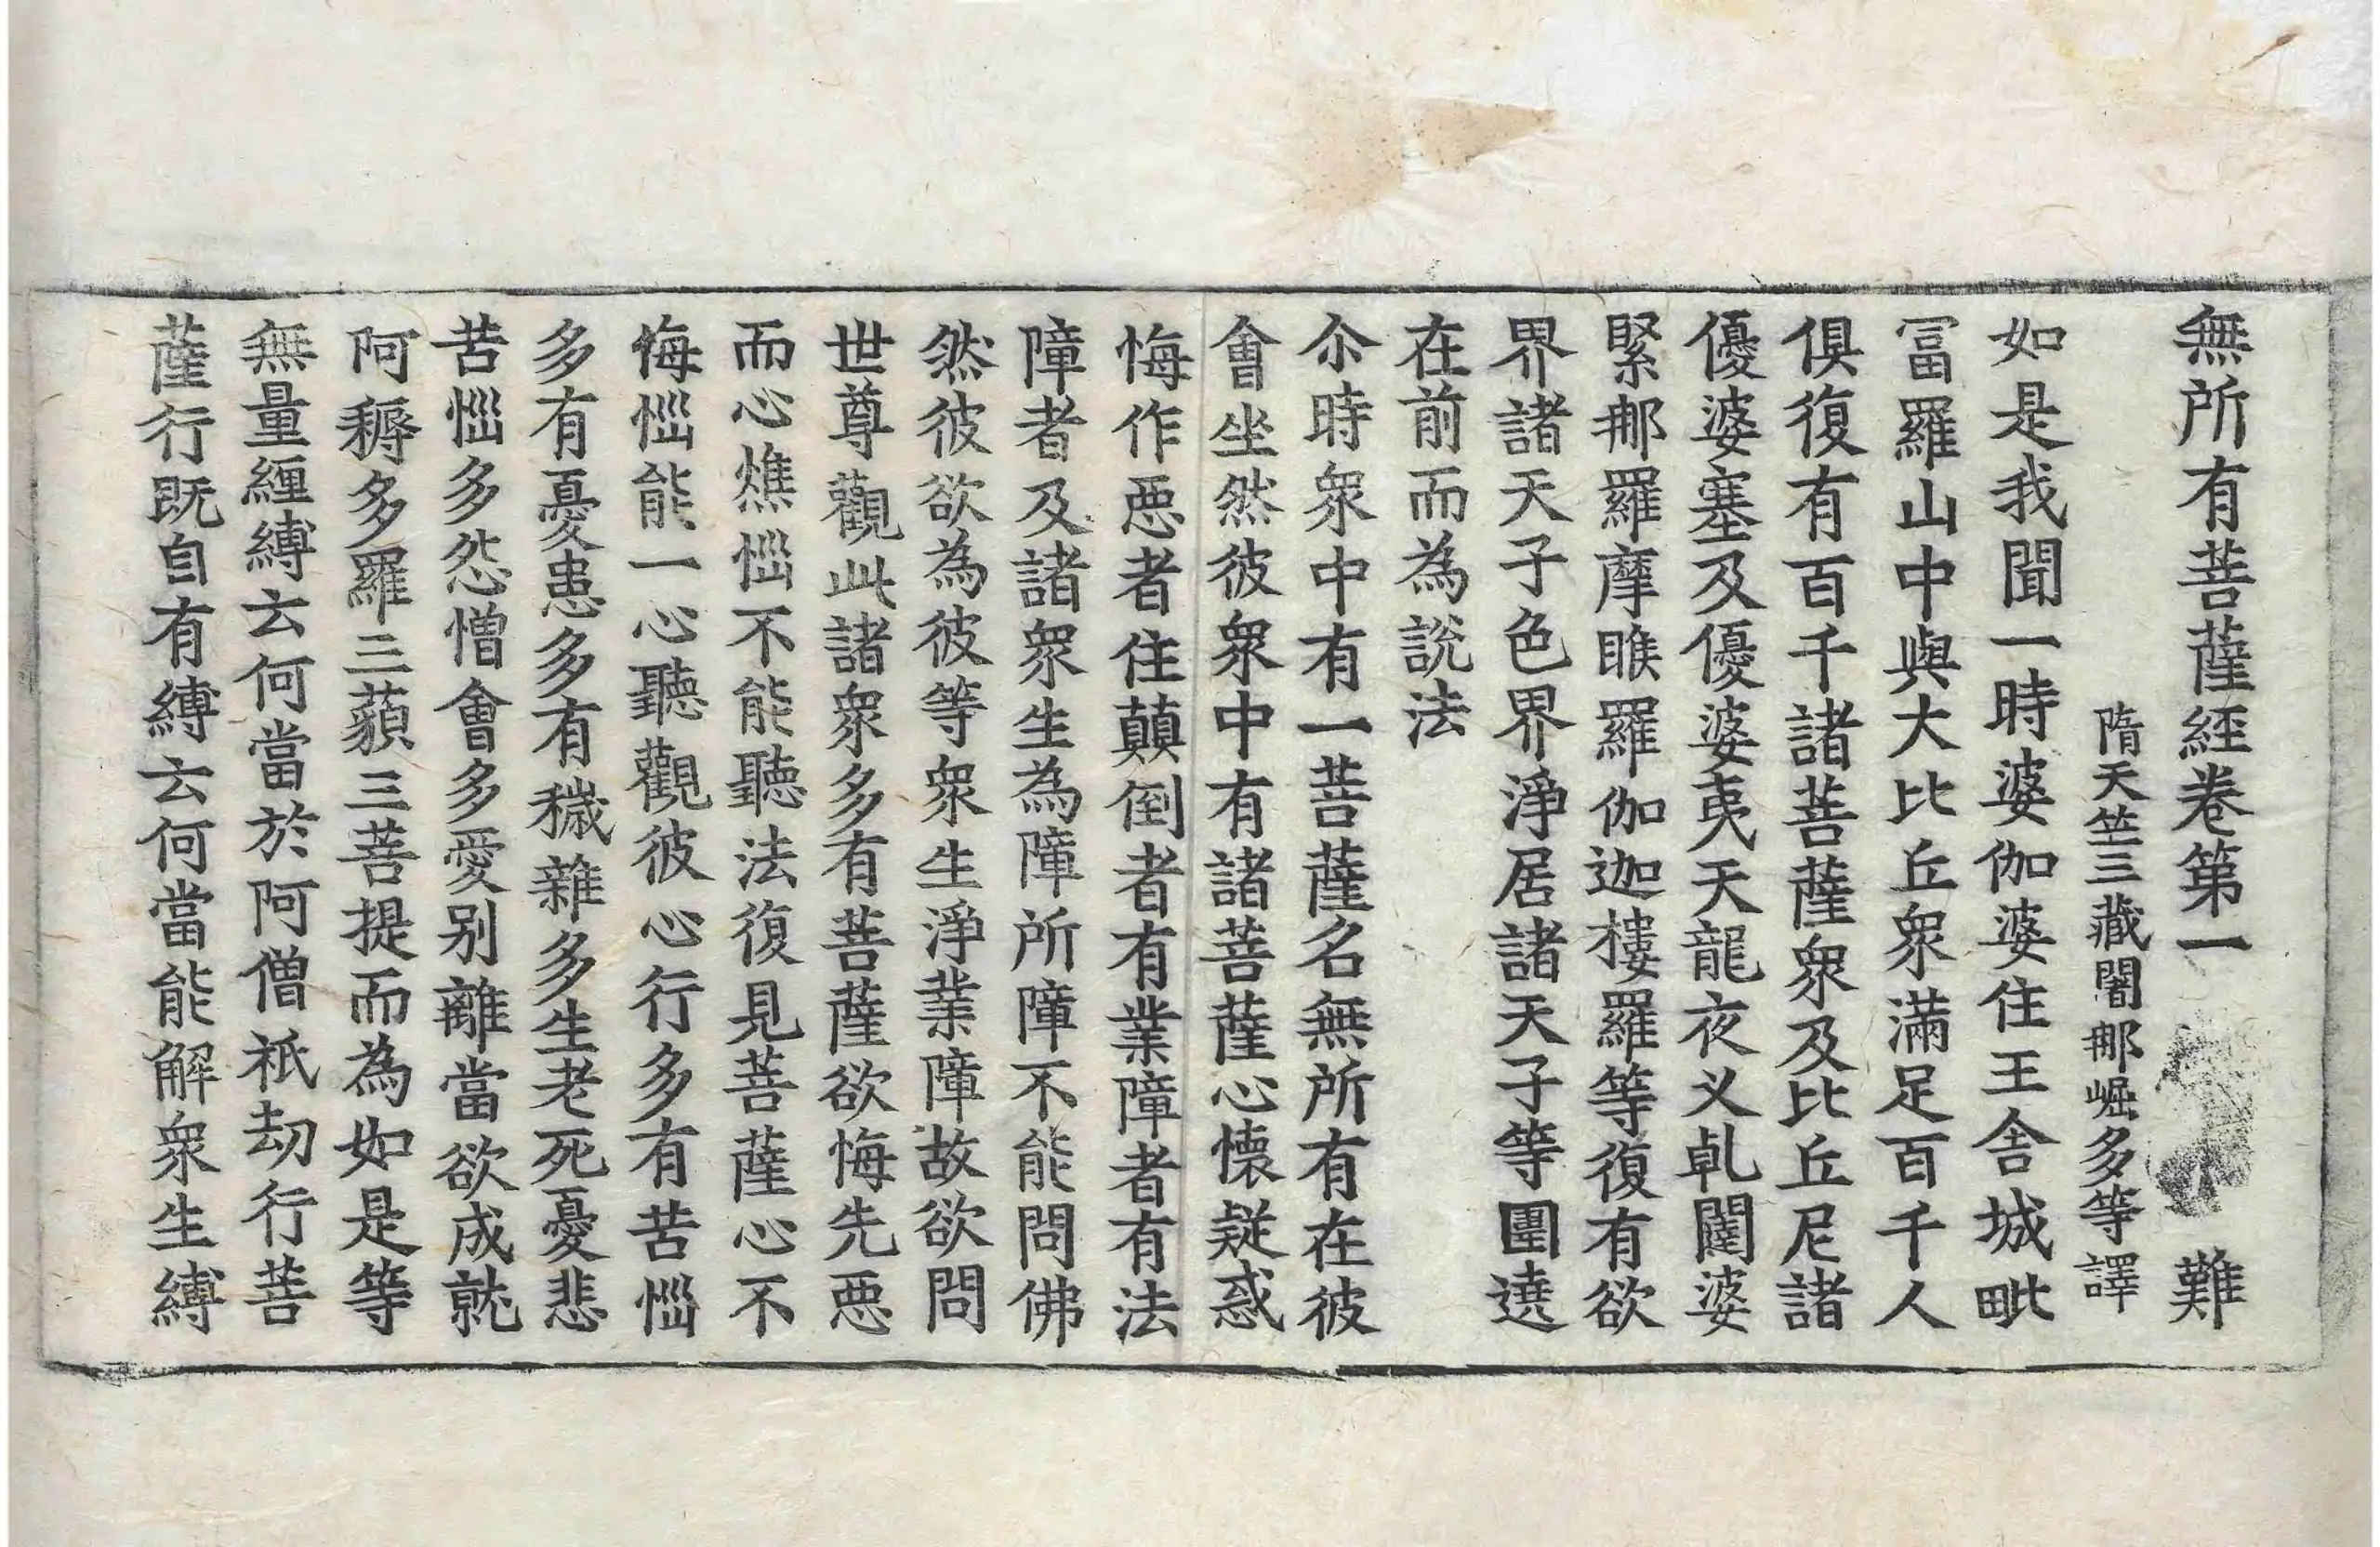 無所有菩薩經卷第一 難
隋天竺三藏闍那崛多等譯
如是我聞一時婆伽婆住王舍城毗
冨羅山中與大比丘衆滿足百千人
俱復有百千諸菩薩衆及比丘尼諸
優婆塞及優婆夷天龍夜叉乹闥婆
緊那羅摩睺羅伽迦樓羅等復有欲
界諸天子色界淨居諸天子等圍遶
在前而為說法
尒時衆中有一菩薩名無所有在彼
會坐然彼衆中有諸菩薩心懷疑惑
悔作惡者住顛倒者有業障者有法
障者及諸衆生為障所障不能問佛
然彼欲為彼等衆生淨業障故欲問
世尊觀此諸衆多有菩薩欲悔先惡
而心燋惱不能聽法復見菩薩心不
悔惱能一心聽觀彼心行多有苦惱
多有憂患多有穢雜多生老死憂悲
苦惱多怨憎會多愛別離當欲成就
阿耨多羅三藐三菩提而為如是等
無量纏縛云何當於阿僧祇劫行菩
薩行既自有縛云何當能解衆生縛